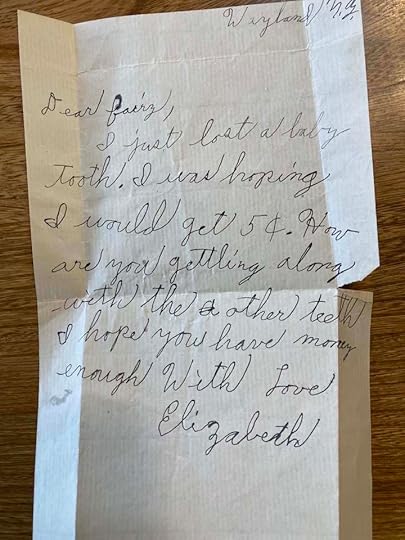 Wayland N.Y.
Dear fairy,
I just lost a baby
tooth. I was hoping
I would get 5¢. How
are you gettling along
with the a other teeth
I hope you have money
enough With Love
Elizabeth